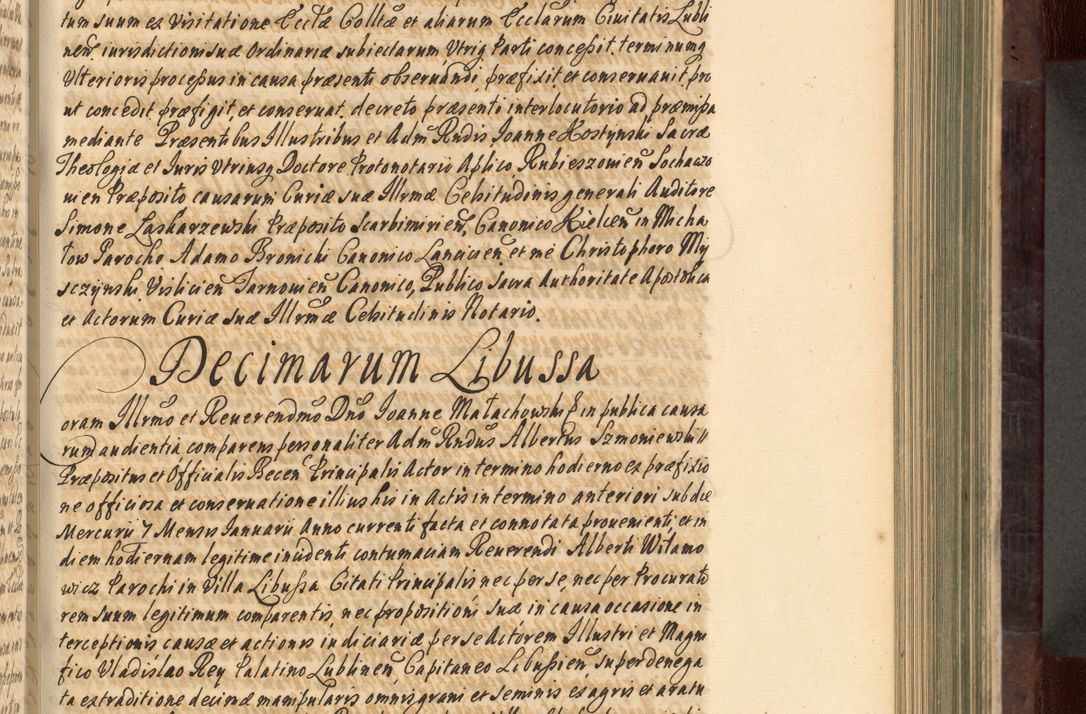 tum suum ex Visitatione Ecclæ Colltæ et aliarum Ecclarum Civitatis Lubli
neñ iurisdictioni suæ Ordinariæ subiectarum, Utriq Parti concessit, terminumq
Ulterioris processus in causa præsenti observandi, præfixit et conservavit, pro
ut concedit præfigit, et conservat, decreto præsenti interlocutorio ad præmissa
mediante Præsentibus Illustribus et Adm Rndis Joanne Hostynski Sacræ
Theologiæ et Juris Utriusq Doctore Protonotario Aplico, Rubieszovieñ Sochaczo
vien Præposito causarum Curiæ suæ Illrmæ Celsitudinis generali Auditore
Simone Laskarzewski Præposito Scarbimirieñ, Canonico Kielceñ in Micha
low Parocho Adamo Bronicki Canonico Lancicieñ et me Christophoro My
sczynski Vislicieñ Tarnovieñ Canonico, Publico Sacra Authoritate Apostolica
et Actorum Curiæ suæ Illrmæ Celsitudinis Notario.
Decimarum Libussa
oram Illrmo et Reverendmo Dno Joanne Małachowski in publica causa
rum audientia comparens personaliter Adm Rndus Albertus Szmoniewski
Præpositus et Officialis Becen Principalis Actor in termino hodierno ex præfixio
ne officiosa et conservatione illius his in Actis in termino anteriori sub die
Mercurii 7 Mensis Januarii Anno currenti facta et connotata provenienti, et in
diem hodiernam legitime incidenti contumaciam Reverendi Alberti Wilamo
wicz Parochi in Villa Libussa Citati Principalis nec per se, nec per Procurato
rem suum legitimum comparentis, nec propositioni suæ in causa occasione in
terceptionis causæ et actionis iudiciariæ per se Actorem Illustri et Magni
fico Vladislao Rey Palatino Lublineñ, Capitaneo Libussieñ, super denega
ta extraditione decimæ manipularis omnis grani et seminis ex agris et aratu